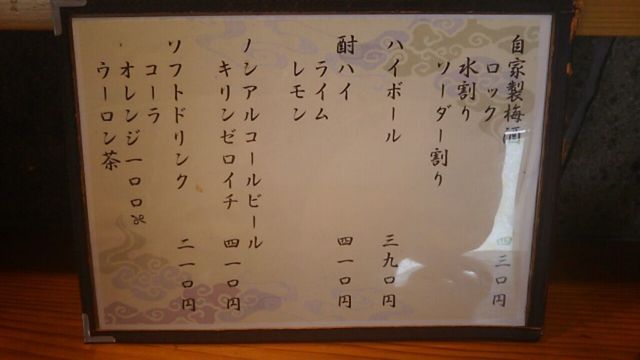 自家製梅酒
ロック 四三〇円
水割り
ソーダー割り
ハイボール 三九〇円
酎ハイ 四一〇円
ライム
レモン
ノンアルコールビール
キリンゼロイチ 四一〇円
ソフトドリンク 二一〇円
コーラ
オレンジ一〇〇%
ウーロン茶